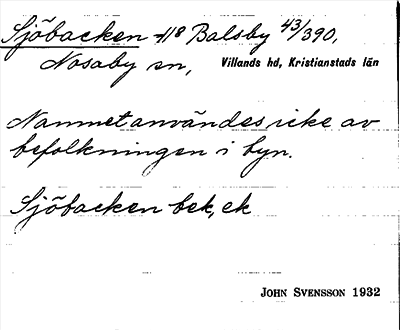 Sjöbacken 418 Balsby 43/390,
Nosaby sn, Villands hd, Kristianstads län
Namnet användes icke av
befolkningen i byn.
Sjöbacken bek, ek
JOHN SVENSSON 1932